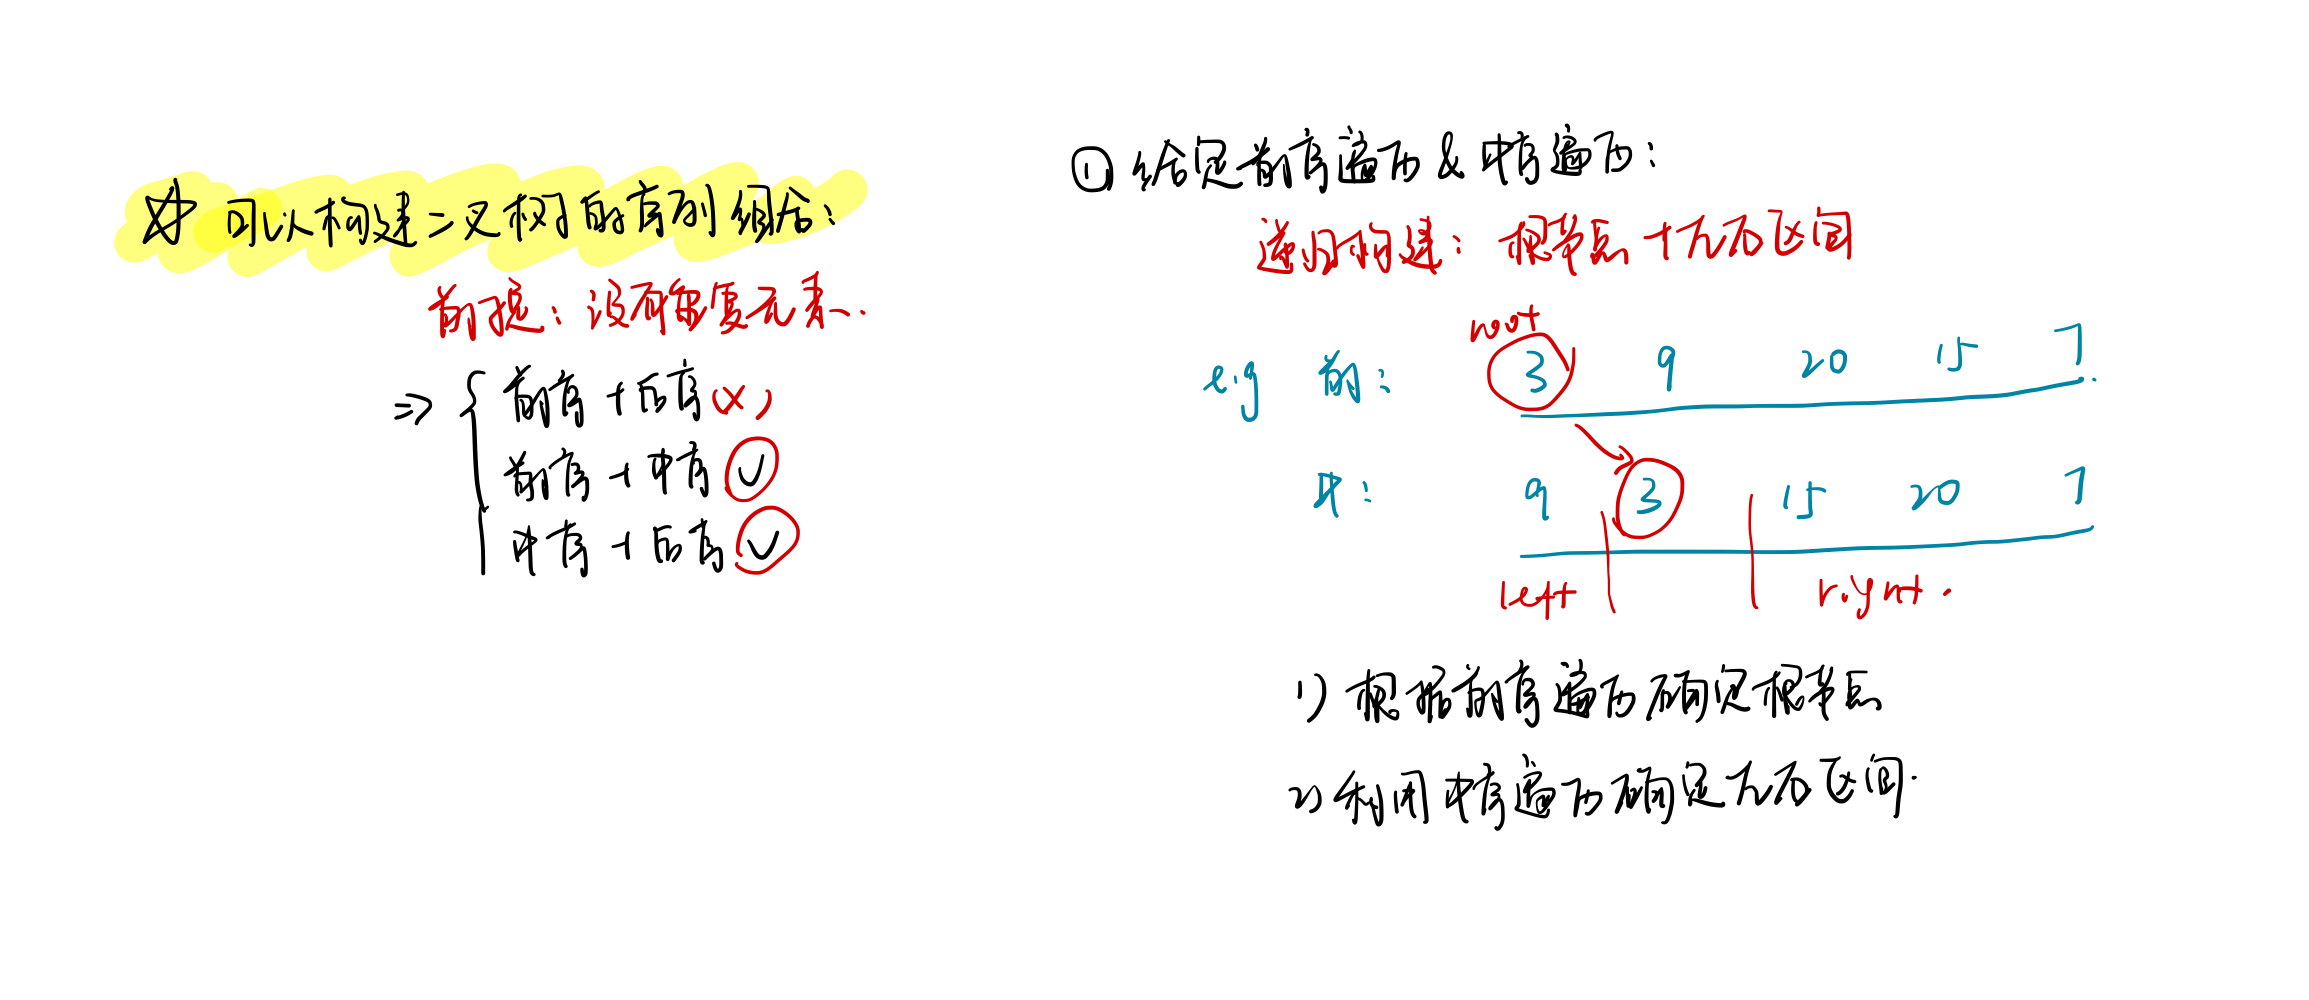 ☆ 可以构建二叉树的序列组合：
前提：没有重复元素.
⇒ { 前序+后序(×)
前序+中序 ✓
中序+后序 ✓
① 给定前序遍历 & 中序遍历：
递归构建：根节点+左右区间
root
e.g 前： 3 9 20 15 7
中： 9 3 15 20 7
left right.
1) 根据前序遍历确定根节点
2) 利用中序遍历确定左右区间.